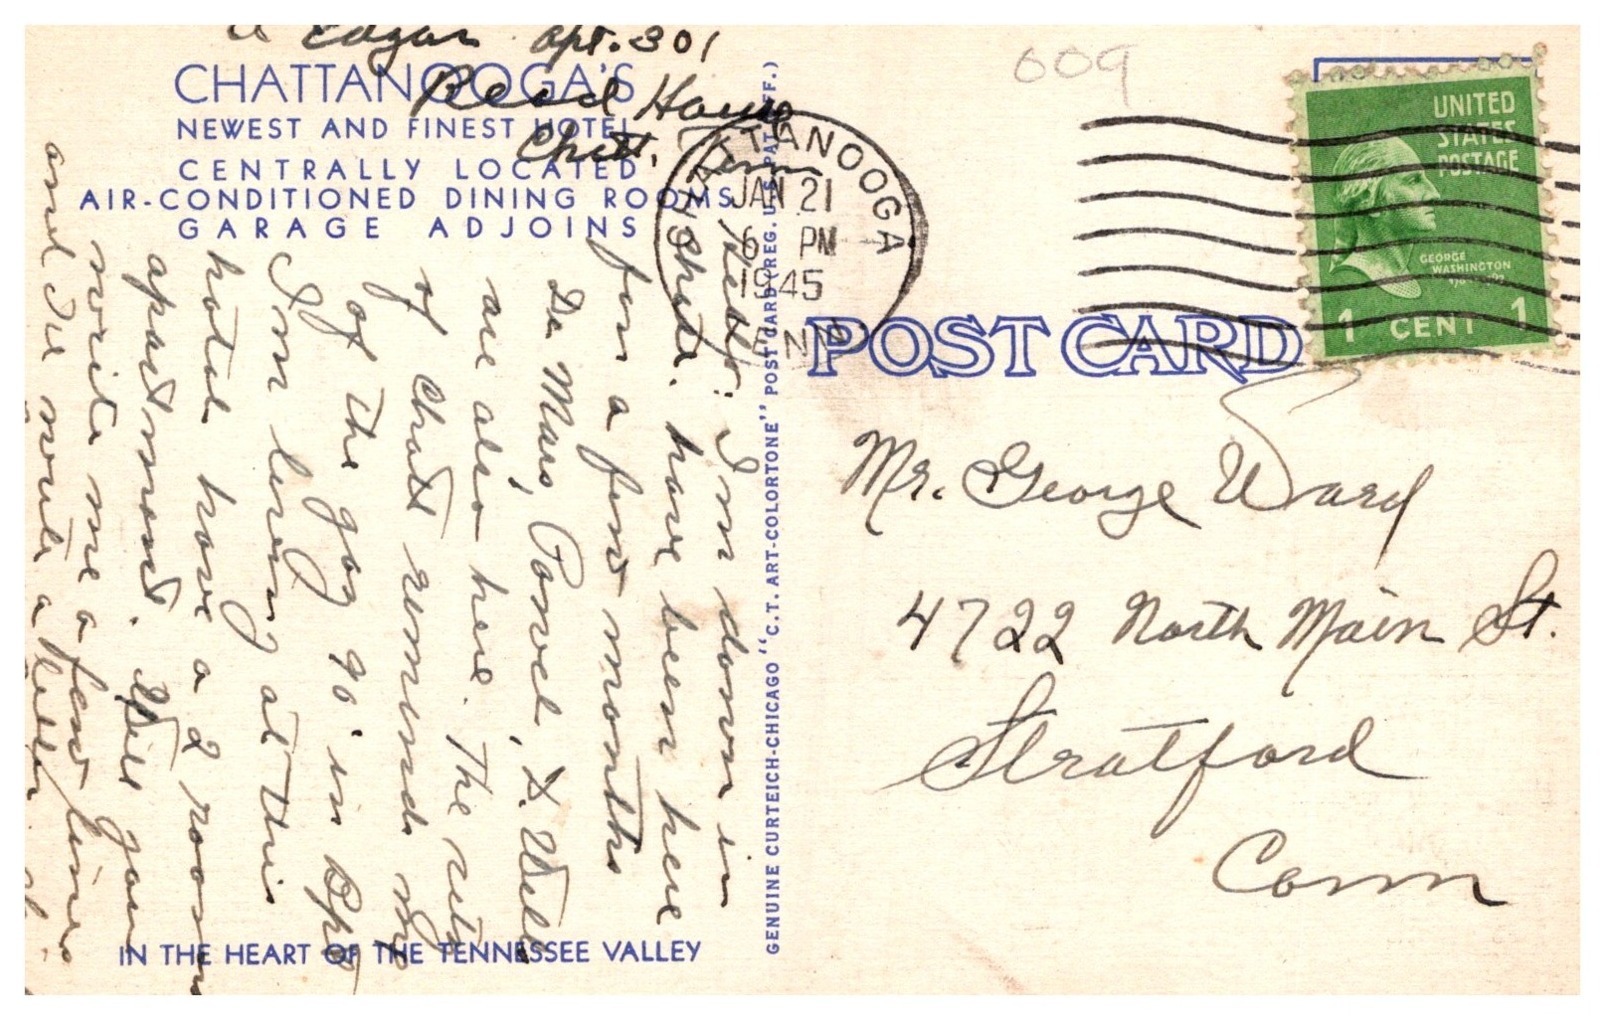 Edgar Apt. 301
Read House
Chatt. Tenn
CHATTANOOGA'S
NEWEST AND FINEST HOTEL
CENTRALLY LOCATED
AIR-CONDITIONED DINING ROOMS
GARAGE ADJOINS
Hello: I'm down in
Chatt. have been here
for a few months
De Mars, Powel, & Wells
are also here. The city
of Chatt reminds me
of the gay 90's in Bpt
I'm living at this
hotel have a 2 room
apartment. Will you
write me a few lines
and I'll write a letter
IN THE HEART OF THE TENNESSEE VALLEY
GENUINE CURTEICH-CHICAGO "C.T. ART-COLORTONE" POST CARD (REG. U.S. PAT. OFF.)
609
CHATTANOOGA
JAN 21
6 PM
1945
TENN.
UNITED
STATES
POSTAGE
GEORGE
WASHINGTON
1 CENT 1
POST CARD
Mr. George Ward
4722 North Main St.
Stratford
Conn